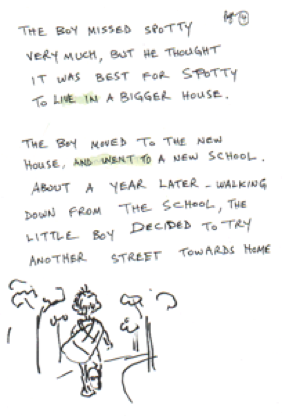 THE BOY MISSED SPOTTY
VERY MUCH, BUT HE THOUGHT
IT WAS BEST FOR SPOTTY
TO LIVE IN A BIGGER HOUSE.
THE BOY MOVED TO THE NEW
HOUSE, AND WENT TO A NEW SCHOOL.
ABOUT A YEAR LATER - WALKING
DOWN FROM THE SCHOOL, THE
LITTLE BOY DECIDED TO TRY
ANOTHER STREET TOWARDS HOME